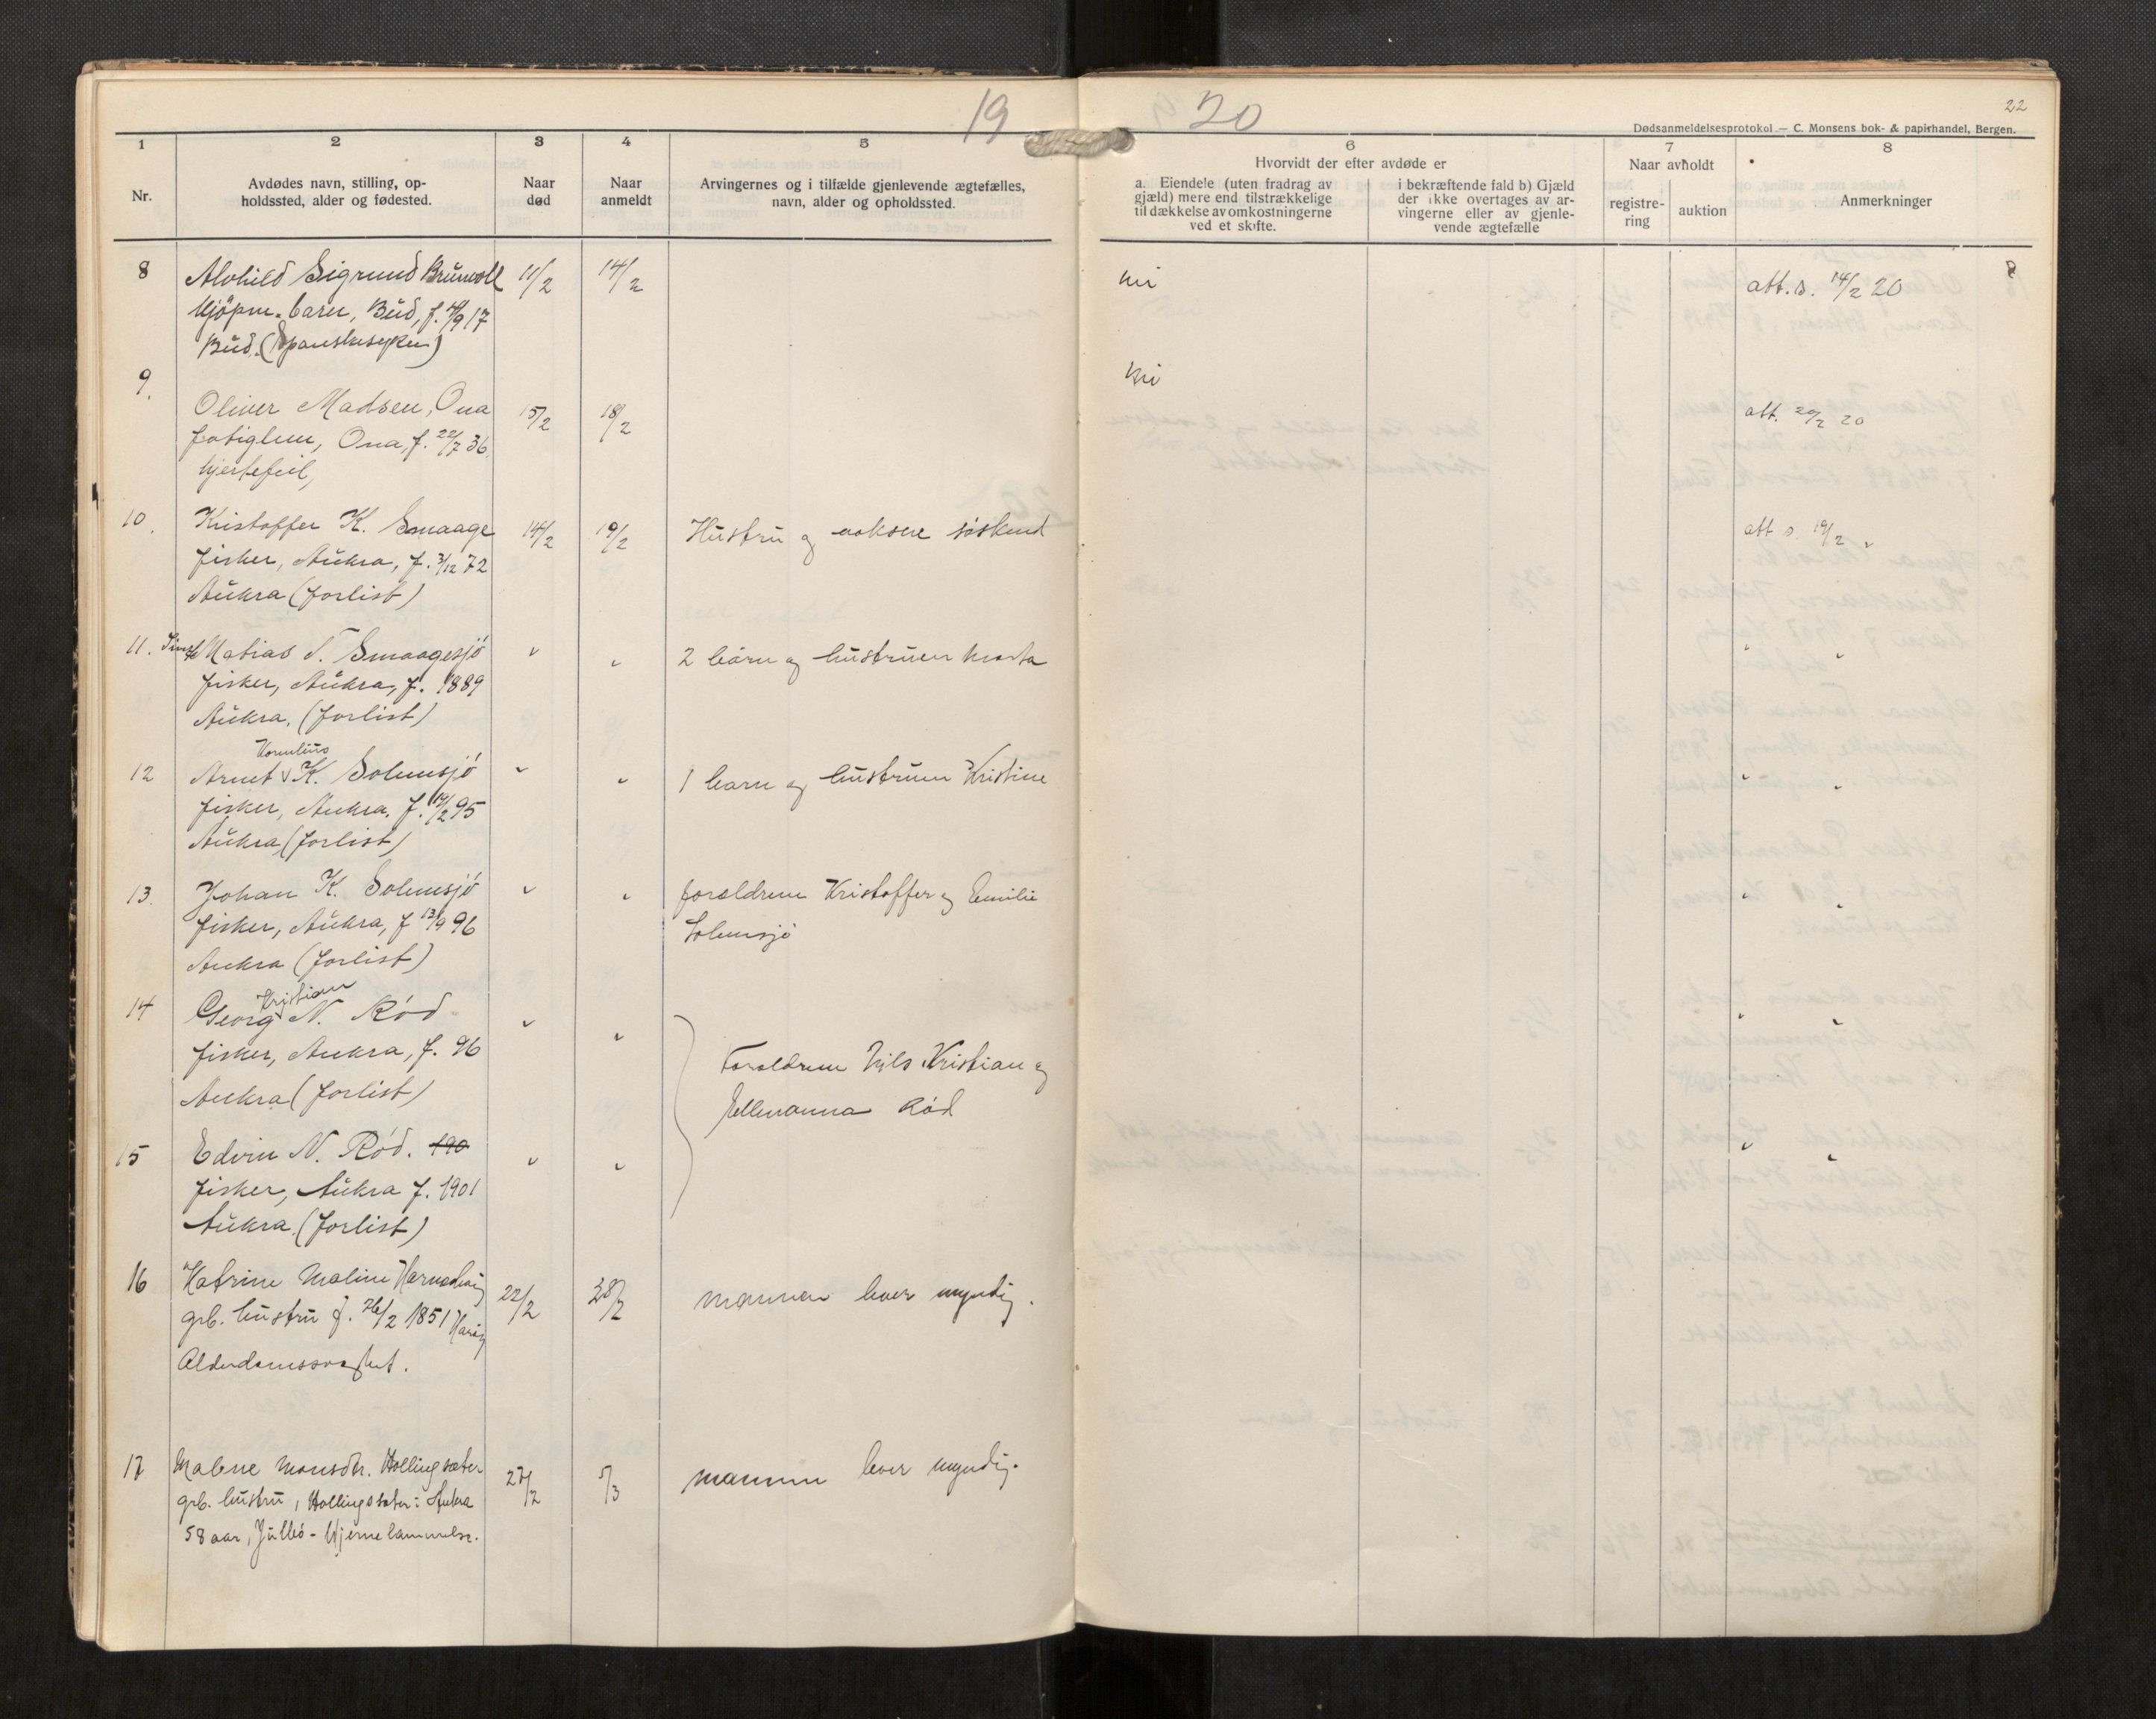 19 20
22
Dødsanmeldelsesprotokol — C. Monsens bok- & papirhandel, Bergen.
1 2 3 4 5 6 7 8
Nr.
Avdødes navn, stilling, op-
holdssted, alder og fødested.
Naar
død
Naar
anmeldt
Arvingernes og i tilfælde gjenlevende ægtefælles,
navn, alder og opholdssted.
Hvorvidt der efter avdøde er
a. Eiendele (uten fradrag av
gjæld) mere end tilstrækkelige
til dækkelse av omkostningerne
ved et skifte.
i bekræftende fald b) Gjæld
der ikke overtages av ar-
vingerne eller av gjenle-
vende ægtefælle
Naar avholdt
registre-
ring
auktion
Anmerkninger
8 Alvhild Sigrund Brunvoll 11/2 14/2 nei att. s. 14/2 20
kjöpm. barn, Bud, f. /9 17
Bud. (Spanskesyken)
9. nei
Oliver Madsen, Ona 15/2 18/2 att. 20/2 20
fatiglem, Ona, f. 22/7 36.
hjertefeil,
10. Kristoffer K. Smaage 14/2 19/2 Hustru og voksne söskend att s. 19/2 "
fisker, Aukra, f. 3/12 72
Aukra (forlist)
11. Matias T. Smaagesjö " " 2 børn og hustruen Marta " "
fisker, Aukra, f. 1889
Aukra. (forlist)
Kornelius
12 Arnet K. Solemsjö " " 1 barn og hustruen Kristine " "
fisker, Aukra. f. 14/2 95
Aukra (forlist)
13. Johan K. Solemsjö " " foreldrene Kristoffer og Emilie " "
fisker, Aukra, f 13/9 96 Solemsjö
Aukra (forlist)
Kristian
14 Georg N. Röd " " " "
fisker, Aukra, f. 96 Foreldrene Nils Kristian og
Aukra (forlist) Ellenanna Röd
15 Edvin N. Röd. 190 " " " "
fisker, Aukra f. 1901
Aukra. (forlist)
16 Katrine Maline 22/2 28/2 mannen lever myndig.
grb. hustru f. 26/2 1851 Haröy
Alderdomssvakhet.
17 Malene Monsdtr. Hollingsæter 27/2 5/3 mannen lever myndig.
grb. hustru, Hollingsæter i Aukra
58 aar, Julbö - Hjernelammelse.